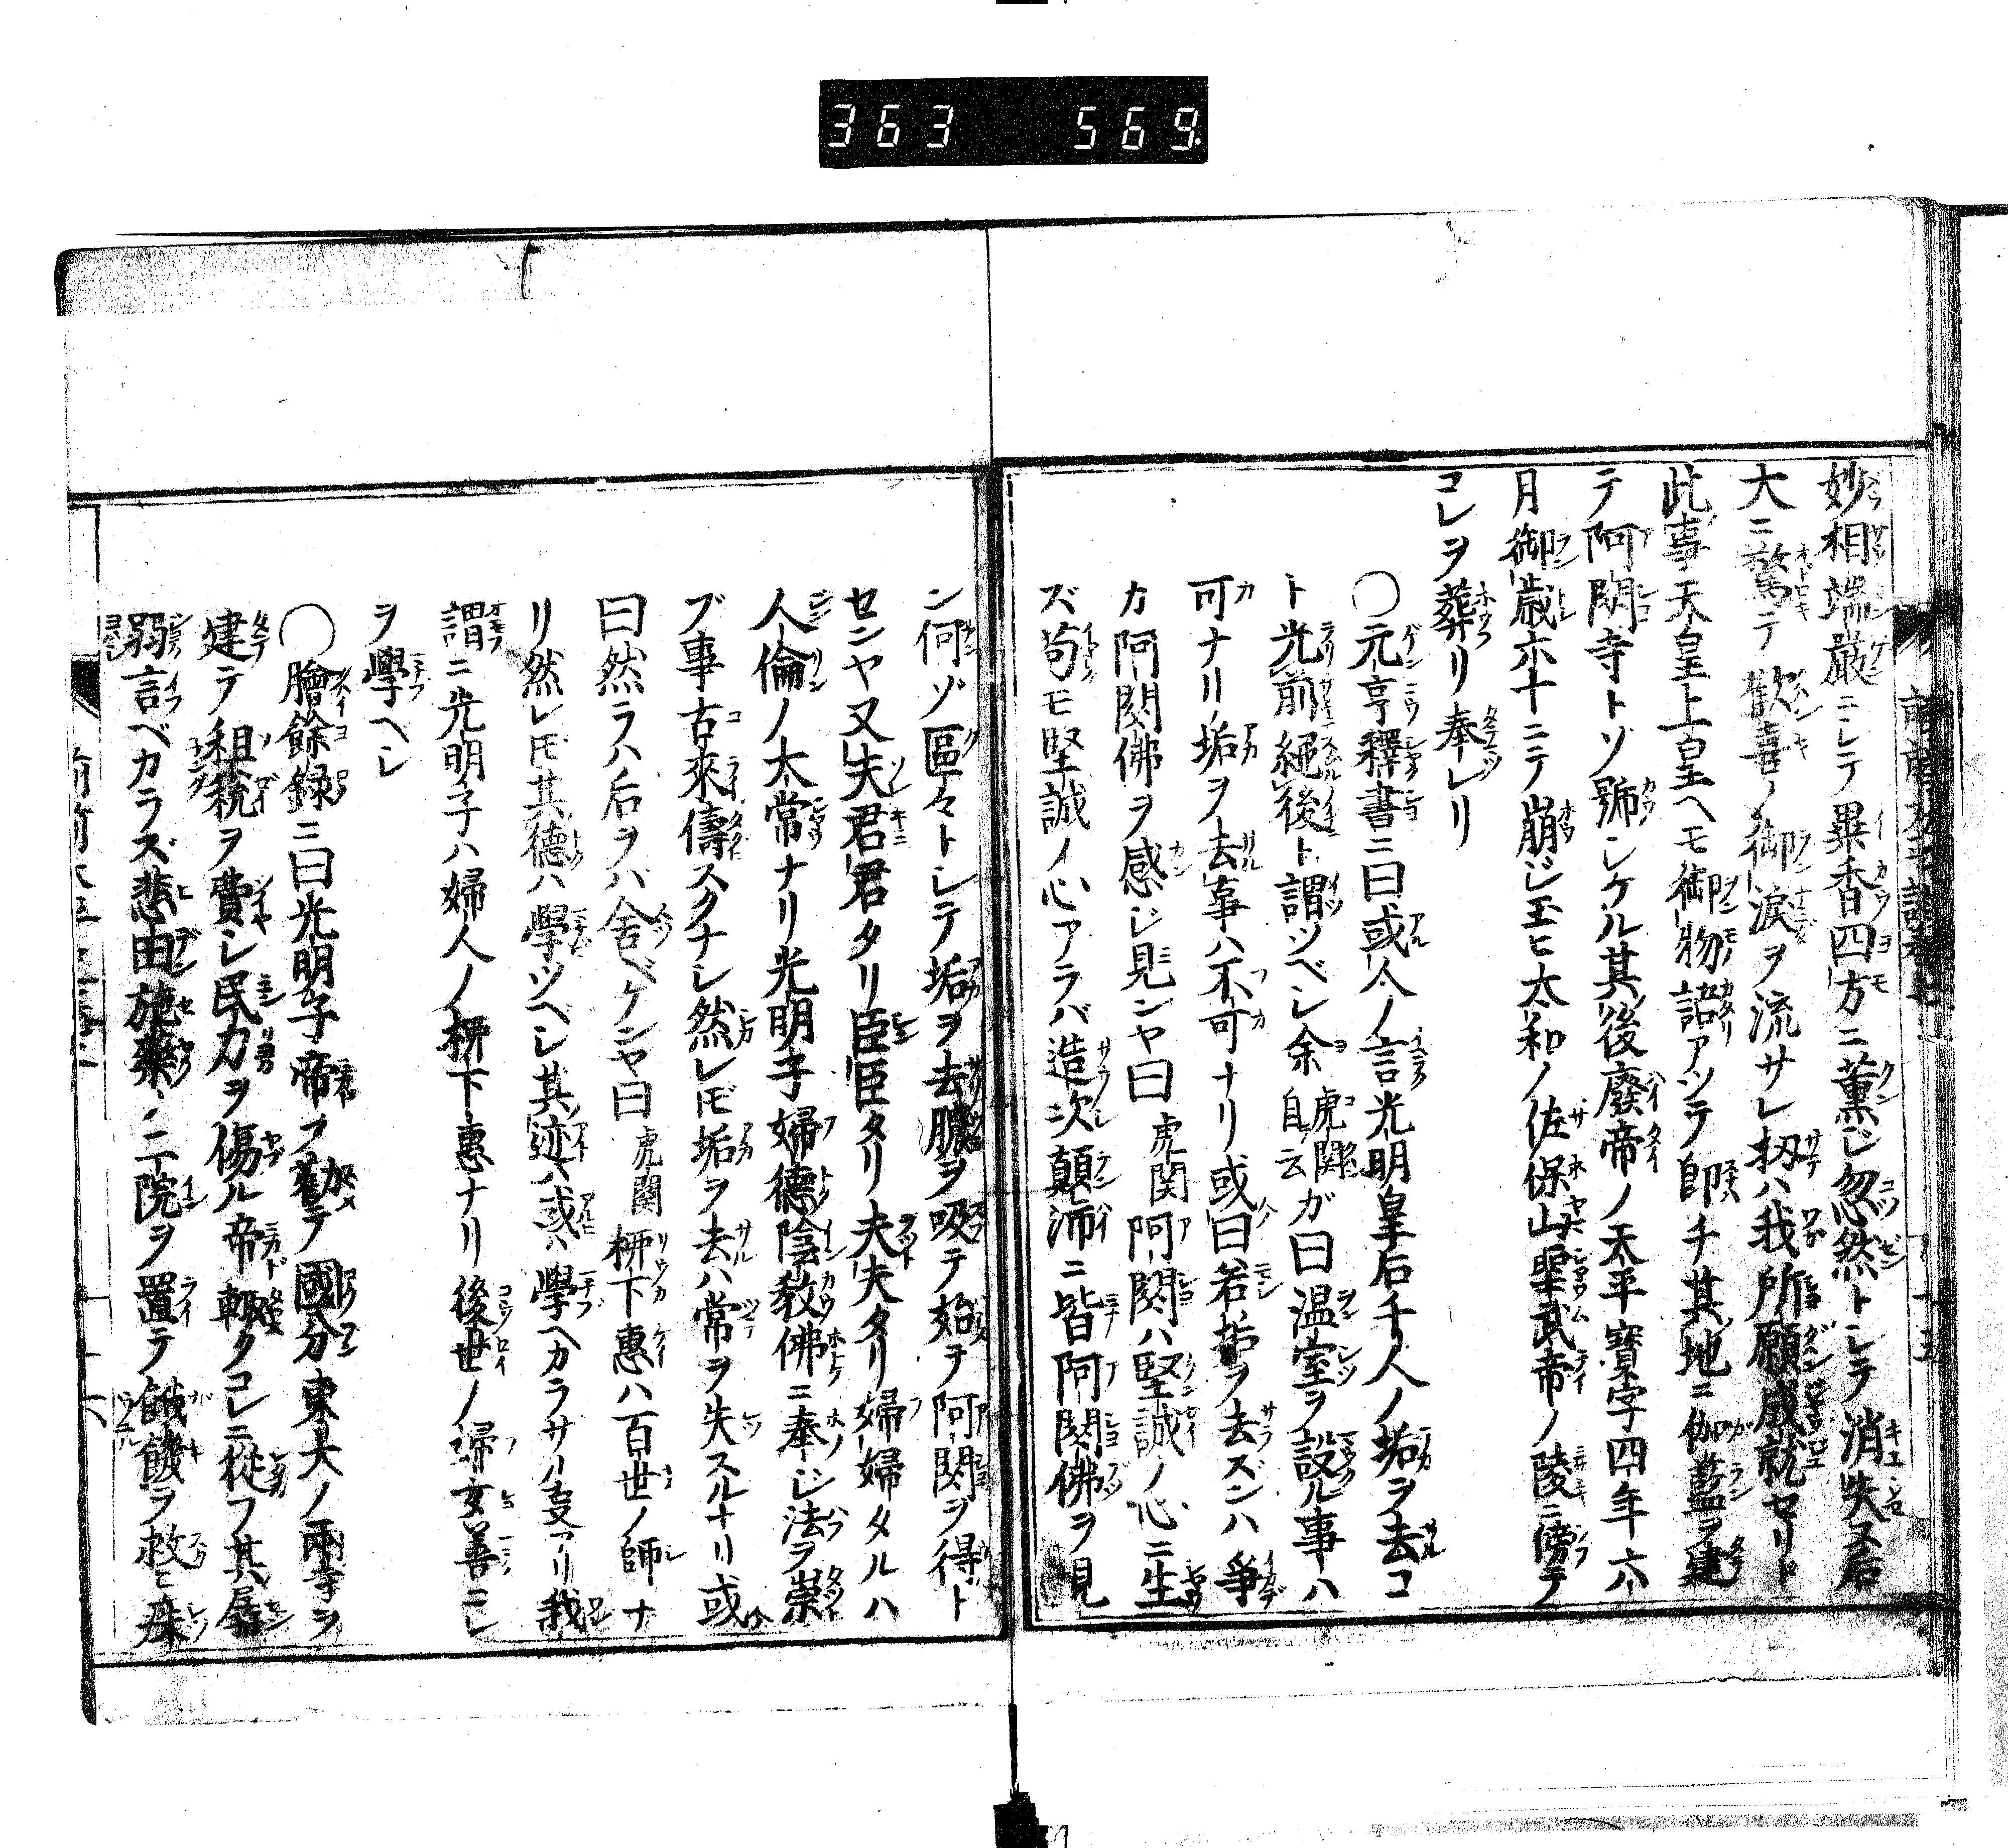 363 569
妙相端嚴ニシテ異香四方ニ薫ジ忽然トシテ消失ス后
大ニ驚テ歡喜ノ御涙ヲ流サレ扨ハ我所願成就セリト
此事天皇上皇ヘモ御物語アツテ即チ其地ニ伽藍ヲ建
テ阿閦寺トソ號シケル其後廢帝ノ天平寶字四年六
月御歳六十ニテ崩ジ玉ヒ大和ノ佐保山聖武帝ノ陵ニ傍テ
コレヲ葬リ奉レリ
○元亨釋書ニ曰或人ノ言光明皇后千人ノ垢ヲ去コ
ト光前絕後ト謂ツベシ余虎関自云ガ曰温室ヲ設ル事ハ
可ナリ垢ヲ去事ハ不可ナリ或曰若垢ヲ去ズンハ爭
カ阿閦佛ヲ感ジ見ンヤ曰虎関阿閦ハ堅誠ノ心ニ生
ズ苟モ堅誠ノ心アラバ造次顛沛ニ皆阿閦佛ヲ見
ン何ゾ區々トシテ垢ヲ去膿ヲ吸テ始テ阿閦ヲ得ト
センヤ又夫君君タリ臣臣タリ夫夫タリ婦婦タルハ
人倫ノ大常ナリ光明子婦德陰教佛ニ奉ジ法ヲ崇
ブ事古來儔スクナシ然レ𪜈垢ヲ去ハ常ヲ失スルナリ或
曰然ラハ后ヲハ舍ベケンヤ曰虎関柳下惠ハ百世ノ師ナ
リ然レ𪜈其德ハ學ツベシ其迹ハ或ハ學ヘカラサル事アリ我
謂ニ光明子ハ婦人ノ柳下惠ナリ後世ノ婦女善ニシ
ヲ學ヘシ
○膾餘録ニ曰光明子帝ヲ勸テ國分東大ノ兩寺ヲ
建テ租税ヲ費シ民力ヲ傷ル帝輙タコレニ從フ其孱
弱言ベカラズ悲田施藥ノ二院ヲ置テ餓饑ヲ救ヒ疾